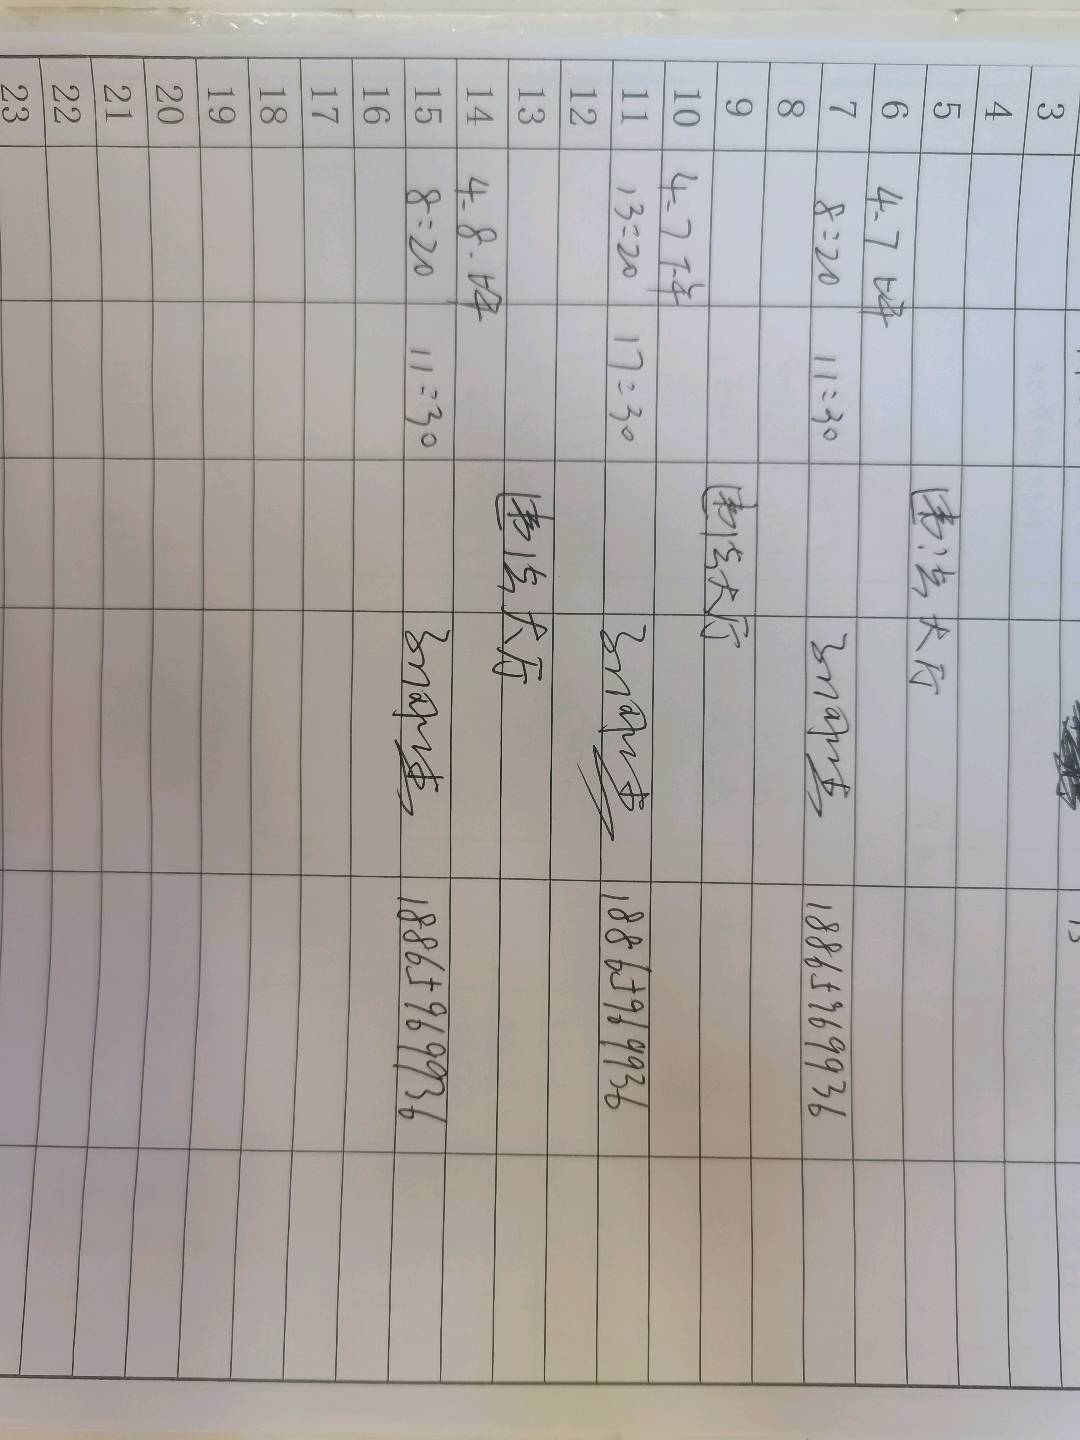 3
4
5 图书馆大厅
6 4.7上午
7 8:20 11:30 18865969936
8
9 图书馆大厅
10 4.7下午
11 13:20 17:30 18865969936
12
13 图书馆大厅
14 4.8.上午
15 8:20 11:30 18865969936
16
17
18
19
20
21
22
23